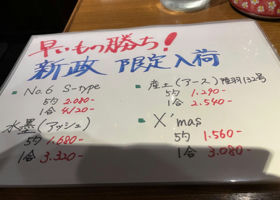 早いもの勝ち!
新政 限定入荷
• No.6 S-type
5勺 2.080-
1合 4.120-
• 産土(アース) 陸羽132号
5勺 1.290-
1合 2.540-
水墨(アッシュ)
5勺 1.680-
1合 3.320-
• X'mas
5勺 1.560-
1合 3.080-